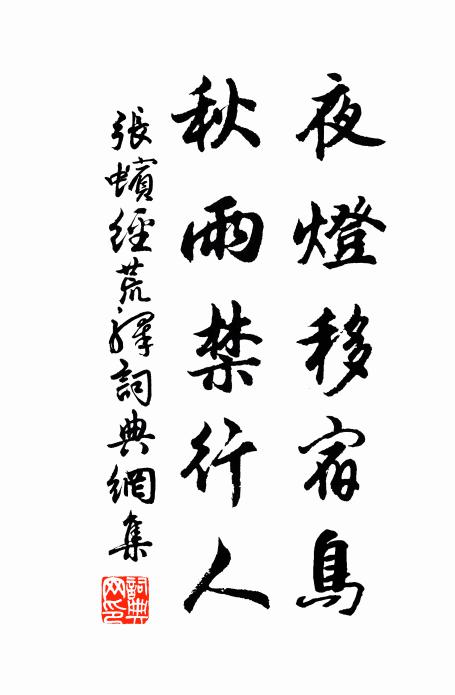 夜燈移宿鳥
秋雨禁行人
張蠙經荒驛詞典網集
詞典网印